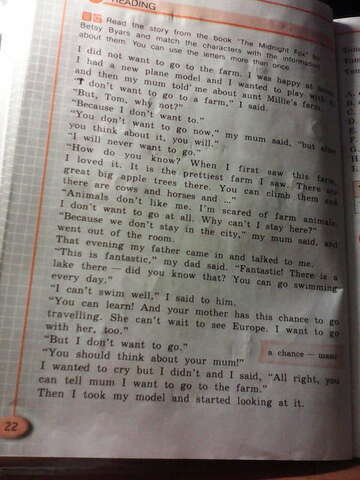 READING
Read the story from the book "The Midnight Fox" by
Betsy Byars and match the characters with the information
about them. You can use the letters more than once.
I did not want to go to the farm. I was happy at home.
I had a new plane model and I wanted to play with it,
and then my mum told me about aunt Millie's farm.
"I don't want to go to a farm," I said.
"But, Tom, why not?"
"Because I don't want to."
"You don't want to go now," my mum said, "but after
you think about it, you will."
"I will never want to go."
"How do you know? When I first saw this farm,
I loved it. It is the prettiest farm I saw. There are
great big apple trees there. You can climb them and
there are cows and horses and ..."
"Animals don't like me. I'm scared of farm animals.
I don't want to go at all. Why can't I stay here?"
"Because we don't stay in the city," my mum said, and
went out of the room.
That evening my father came in and talked to me.
"This is fantastic," my dad said. "Fantastic! There is a
lake there — did you know that? You can go swimming
every day."
"I can't swim well," I said to him.
"You can learn! And your mother has this chance to go
travelling. She can't wait to see Europe. I want to go
with her, too."
"But I don't want to go."
a chance —
"You should think about your mum!"
I wanted to cry but I didn't and I said, "All right, you
can tell mum I want to go to the farm."
Then I took my model and started looking at it.
22